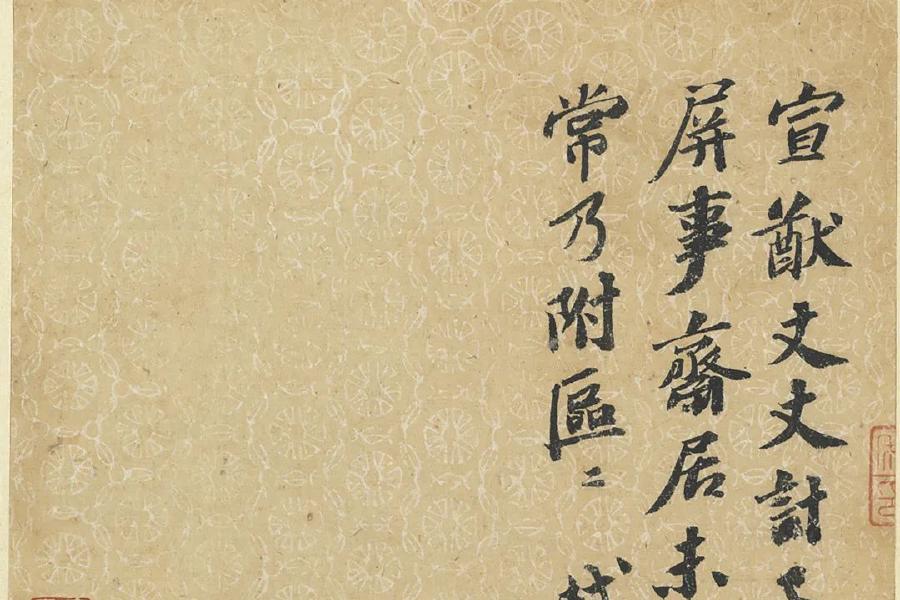 宣猷丈丈計
屏事齋居未
常乃附區〻